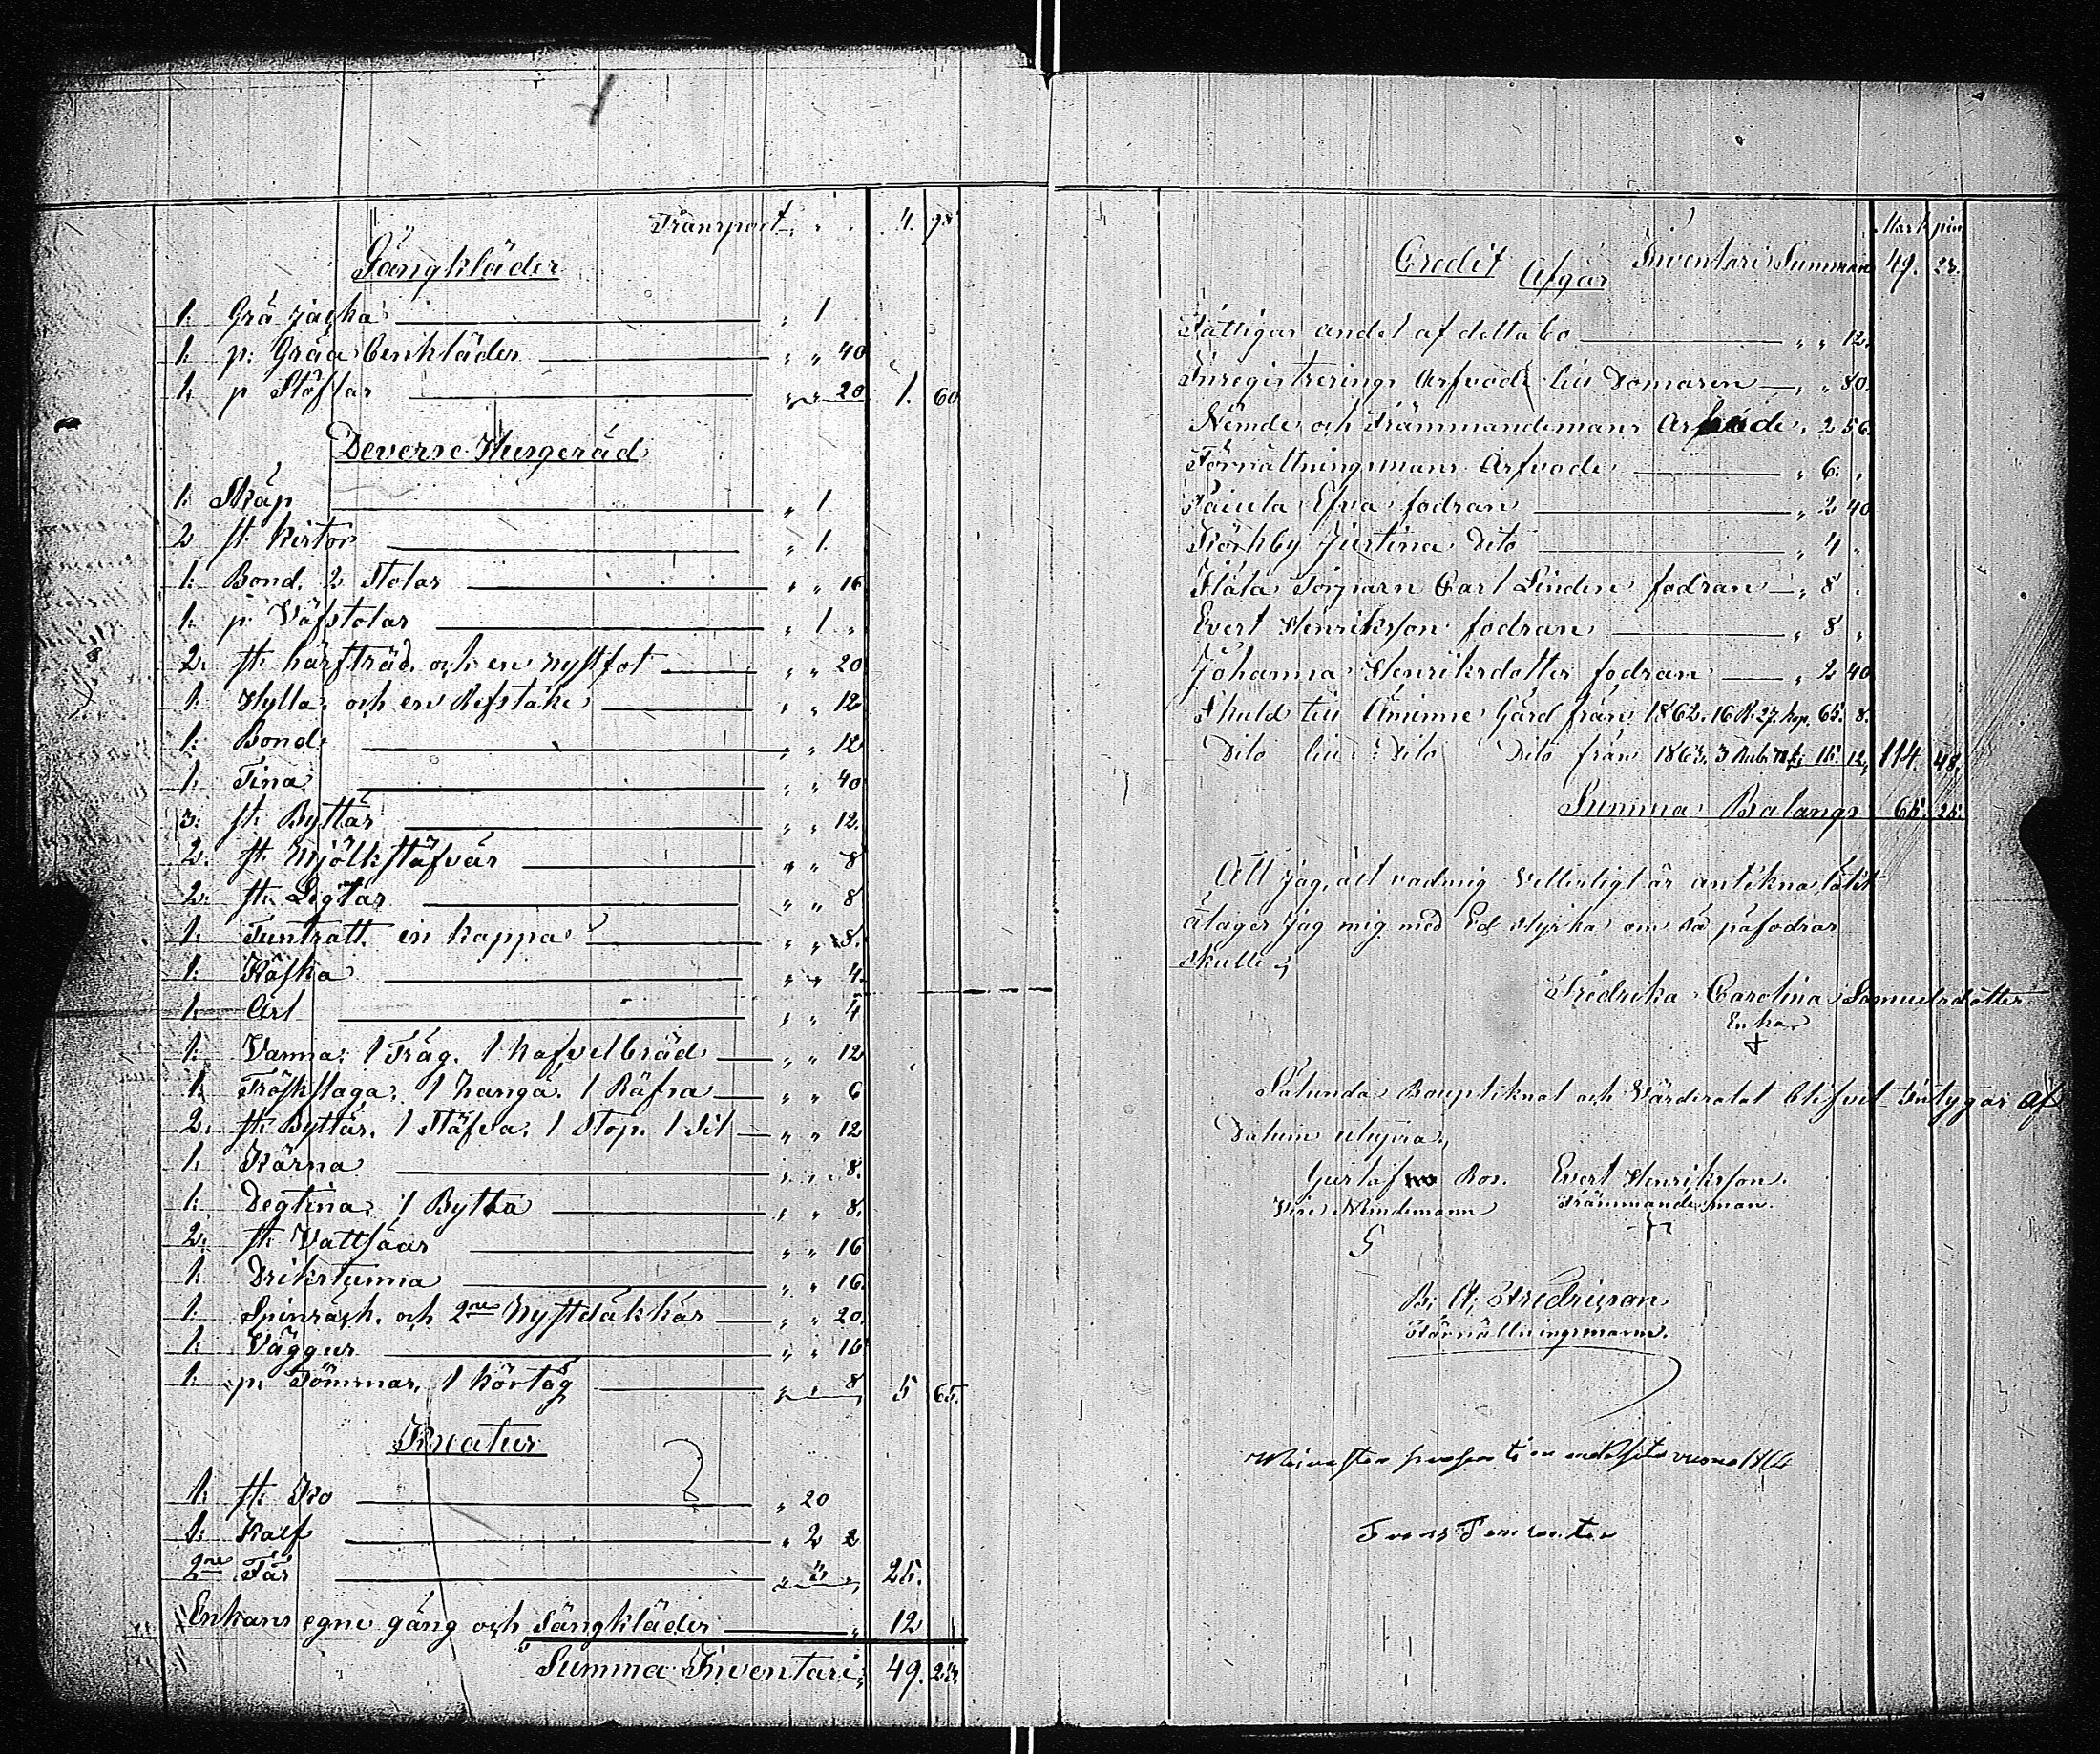 Transport " " 4. 98
Gångkläder
1: Grå jacka " 1
1: p: Gråa Benkläder " " 40
1: p Stöflar " " 20 1. 60
Deverse Husgeråd
1: Skåp " 1
2 st: kistor " 1.
1: Bord. 2 Stolar " " 16
1: p: Väfstolar " 1 "
2. st: härfträd. och en nystfot " " 20
1: Hylla och en Refstake " " 12
1: Bord " " 12
1. Tina " " 40
3: st: Byttar " " 12.
2. st: Mjölkstäfvar " " 8
2: st: Ligtar " " 8
1: Tuntratt. en kappa " " 8.
1: Flaska " " 4.
1: Arl " " 4
1: Vanna: 1 Tråg. 1 kafvelbräd " " 12
1: Tröskslaga. 1 zanga. 1 Räfsa " " 6
2. st: Byttar. 1 Stäfva. 1 Stop. 1 Sil " " 12
1. Kärna " " 8.
1: Degtina. 1 Bytta " " 8.
2. st: Vattsåar " " 16
1: Drikstunna " " 16.
1. Spinråck. och 2ne Nystdäkkar " " 20.
1: Väggur " " 16
1: p: Tömmar, 1 körtåg " " 8 5 65.
Kreatur
1: st: Ko " 20
1: Kalf " 2 "
2ne Får " 3 " 25.
Enkans egne gång och Sängkläder " 12
Summa Inventari: 49. 23.
Mark pin
Credit Inventari Summan 49. 23.
Afgår
Fattigas andel af detta bo " " 12.
Inregistrerings Arfvode till Domaren " " 80.
Nämde och Främmandemans Arfvode. 2 56.
Förrättningsmans Arfvode " 6. "
Påiula Efva fodran " 2 40
Körkby Justina Dito " 4 "
Flåta Torparn Carl Linden fodran " 8 "
Evert Henriksson fodran " 8 "
Johanna Henriksdotter fodran " 2 40
Skuld till Åminne Gård från 1862. 16 R. 27. kop. 65. 8.
Dito till Dito Dito från 1863. 3 Rub. 78 k. 15. 12. 114. 48.
Summa Balangs 65. 25.
Att jag, alt vad mig Vetterligt är anteknalåtit
åtager jag mig med Ed styrka om så påfodras
skulle.
Fredrika Carolina Samuelsdotter
Enka
Sålunda Bouptiknat och Värderatat blifvit Intygar af
Datum utsjvra,
Gustaf Ros. Evert Henriksson.
Vice Nämdemann Främmandesman.
B. A. Fredricson
Förrättningsmann.
1864